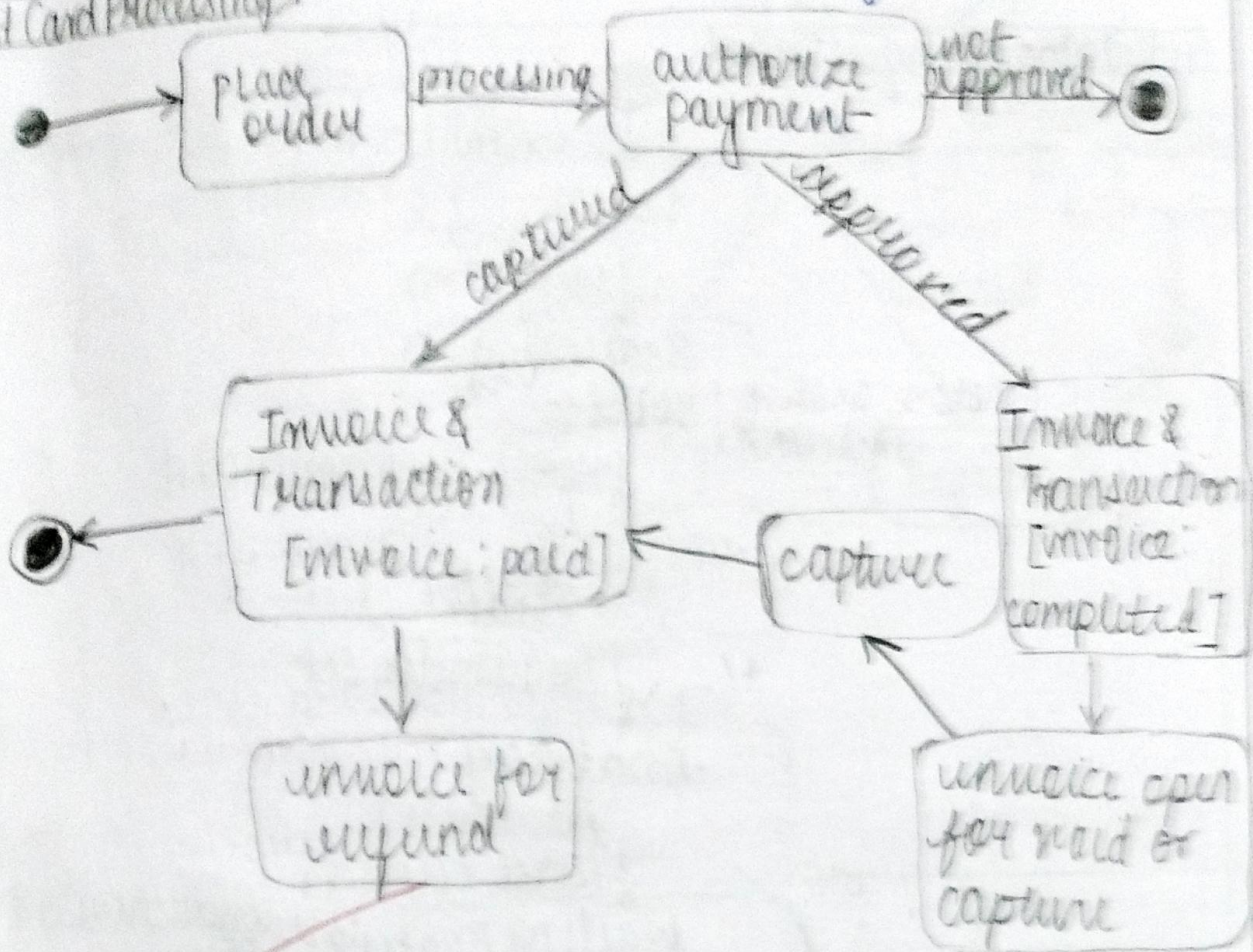 Card Processing
place
order
processing
authorize
payment
not
approved
captured
approved
Invoice &
Transaction
[invoice: paid]
capture
Invoice &
Transaction
[invoice:
completed]
invoice for
refund
invoice open
for void or
capture